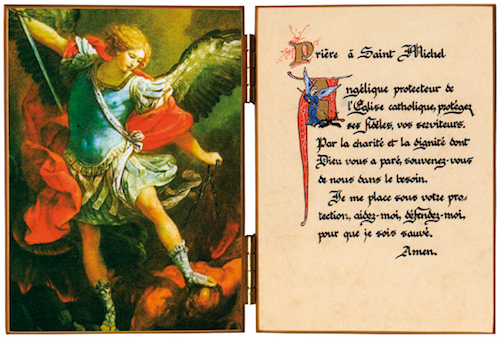 Prière à Saint Michel
Angélique protecteur de
l'Église catholique, protégez
ses fidèles, vos serviteurs.
Par la charité et la dignité dont
Dieu vous a paré, souvenez-vous
de nous dans le besoin.
Je me place sous votre pro-
tection, aidez-moi, défendez-moi,
pour que je sois sauvé.
Amen.